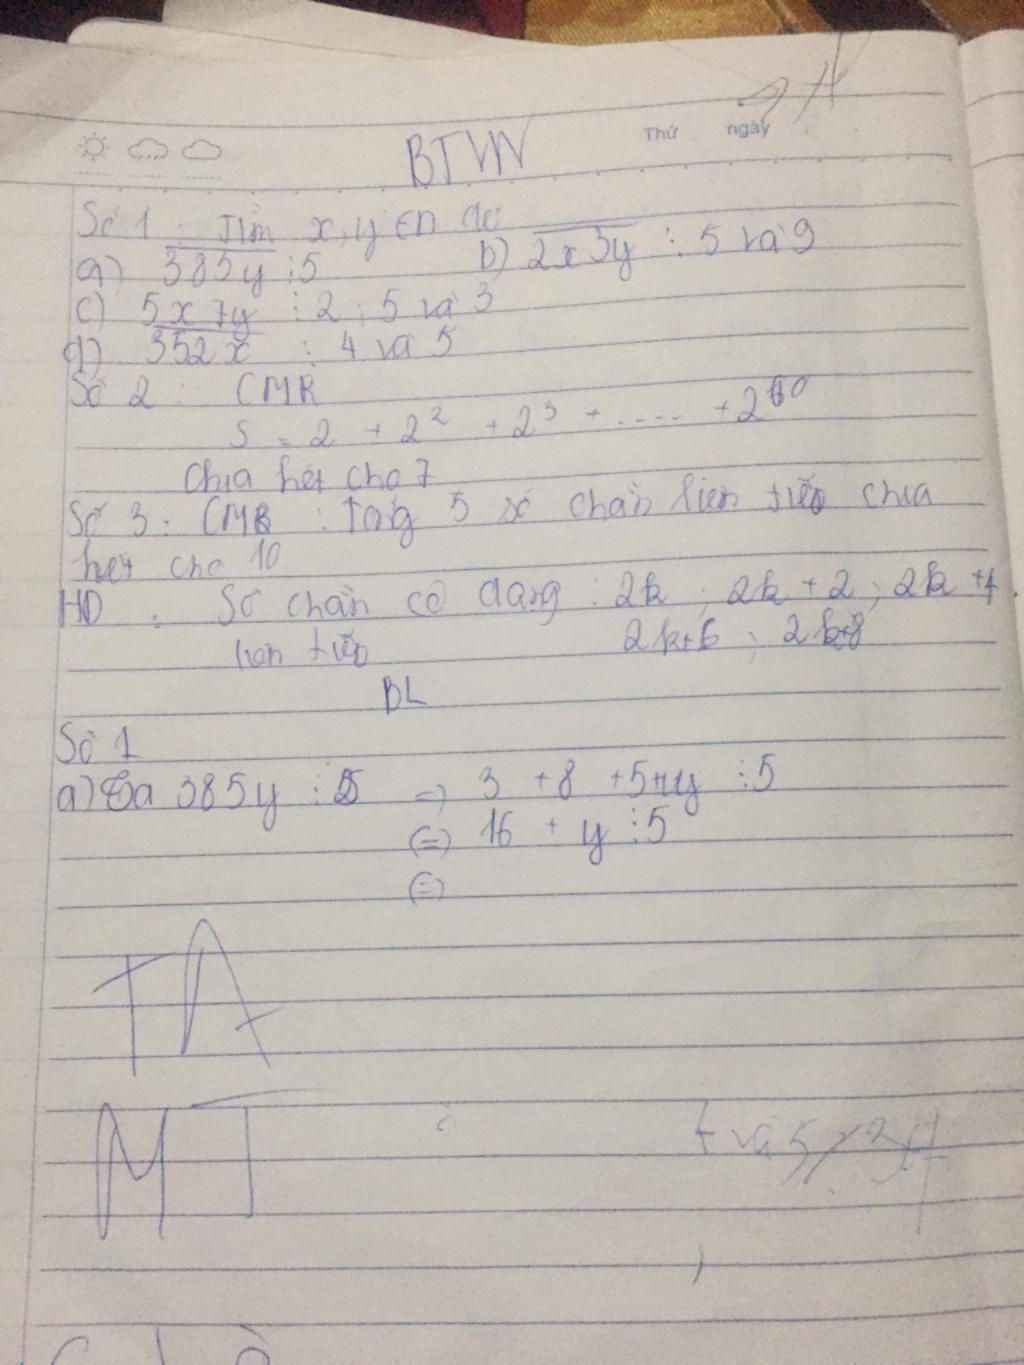 Thứ ngày
BTVN
Số 1 : Tìm x, y ∈ n để
a) 385y ⋮ 5 b) 2x3y ⋮ 5 và 9
c) 5x7y ⋮ 2 ; 5 và 3
d) 352x ⋮ 4 và 5
Số 2 : CMR
S = 2 + 2² + 2³ + ..... + 2⁶⁰
Chia hết cho 7
Số 3 : CMR : Tổng 5 số chẵn liên tiếp chia
hết cho 10
HD : Số chẵn có dạng : 2k ; 2k + 2 ; 2k + 4
liên tiếp 2k+6 ; 2k+8
BL
Số 1
a) Ta 385y ⋮ 5 => 3 + 8 + 5 + y ⋮ 5
(=) 16 + y ⋮ 5
(=)
TA
MT
và 5